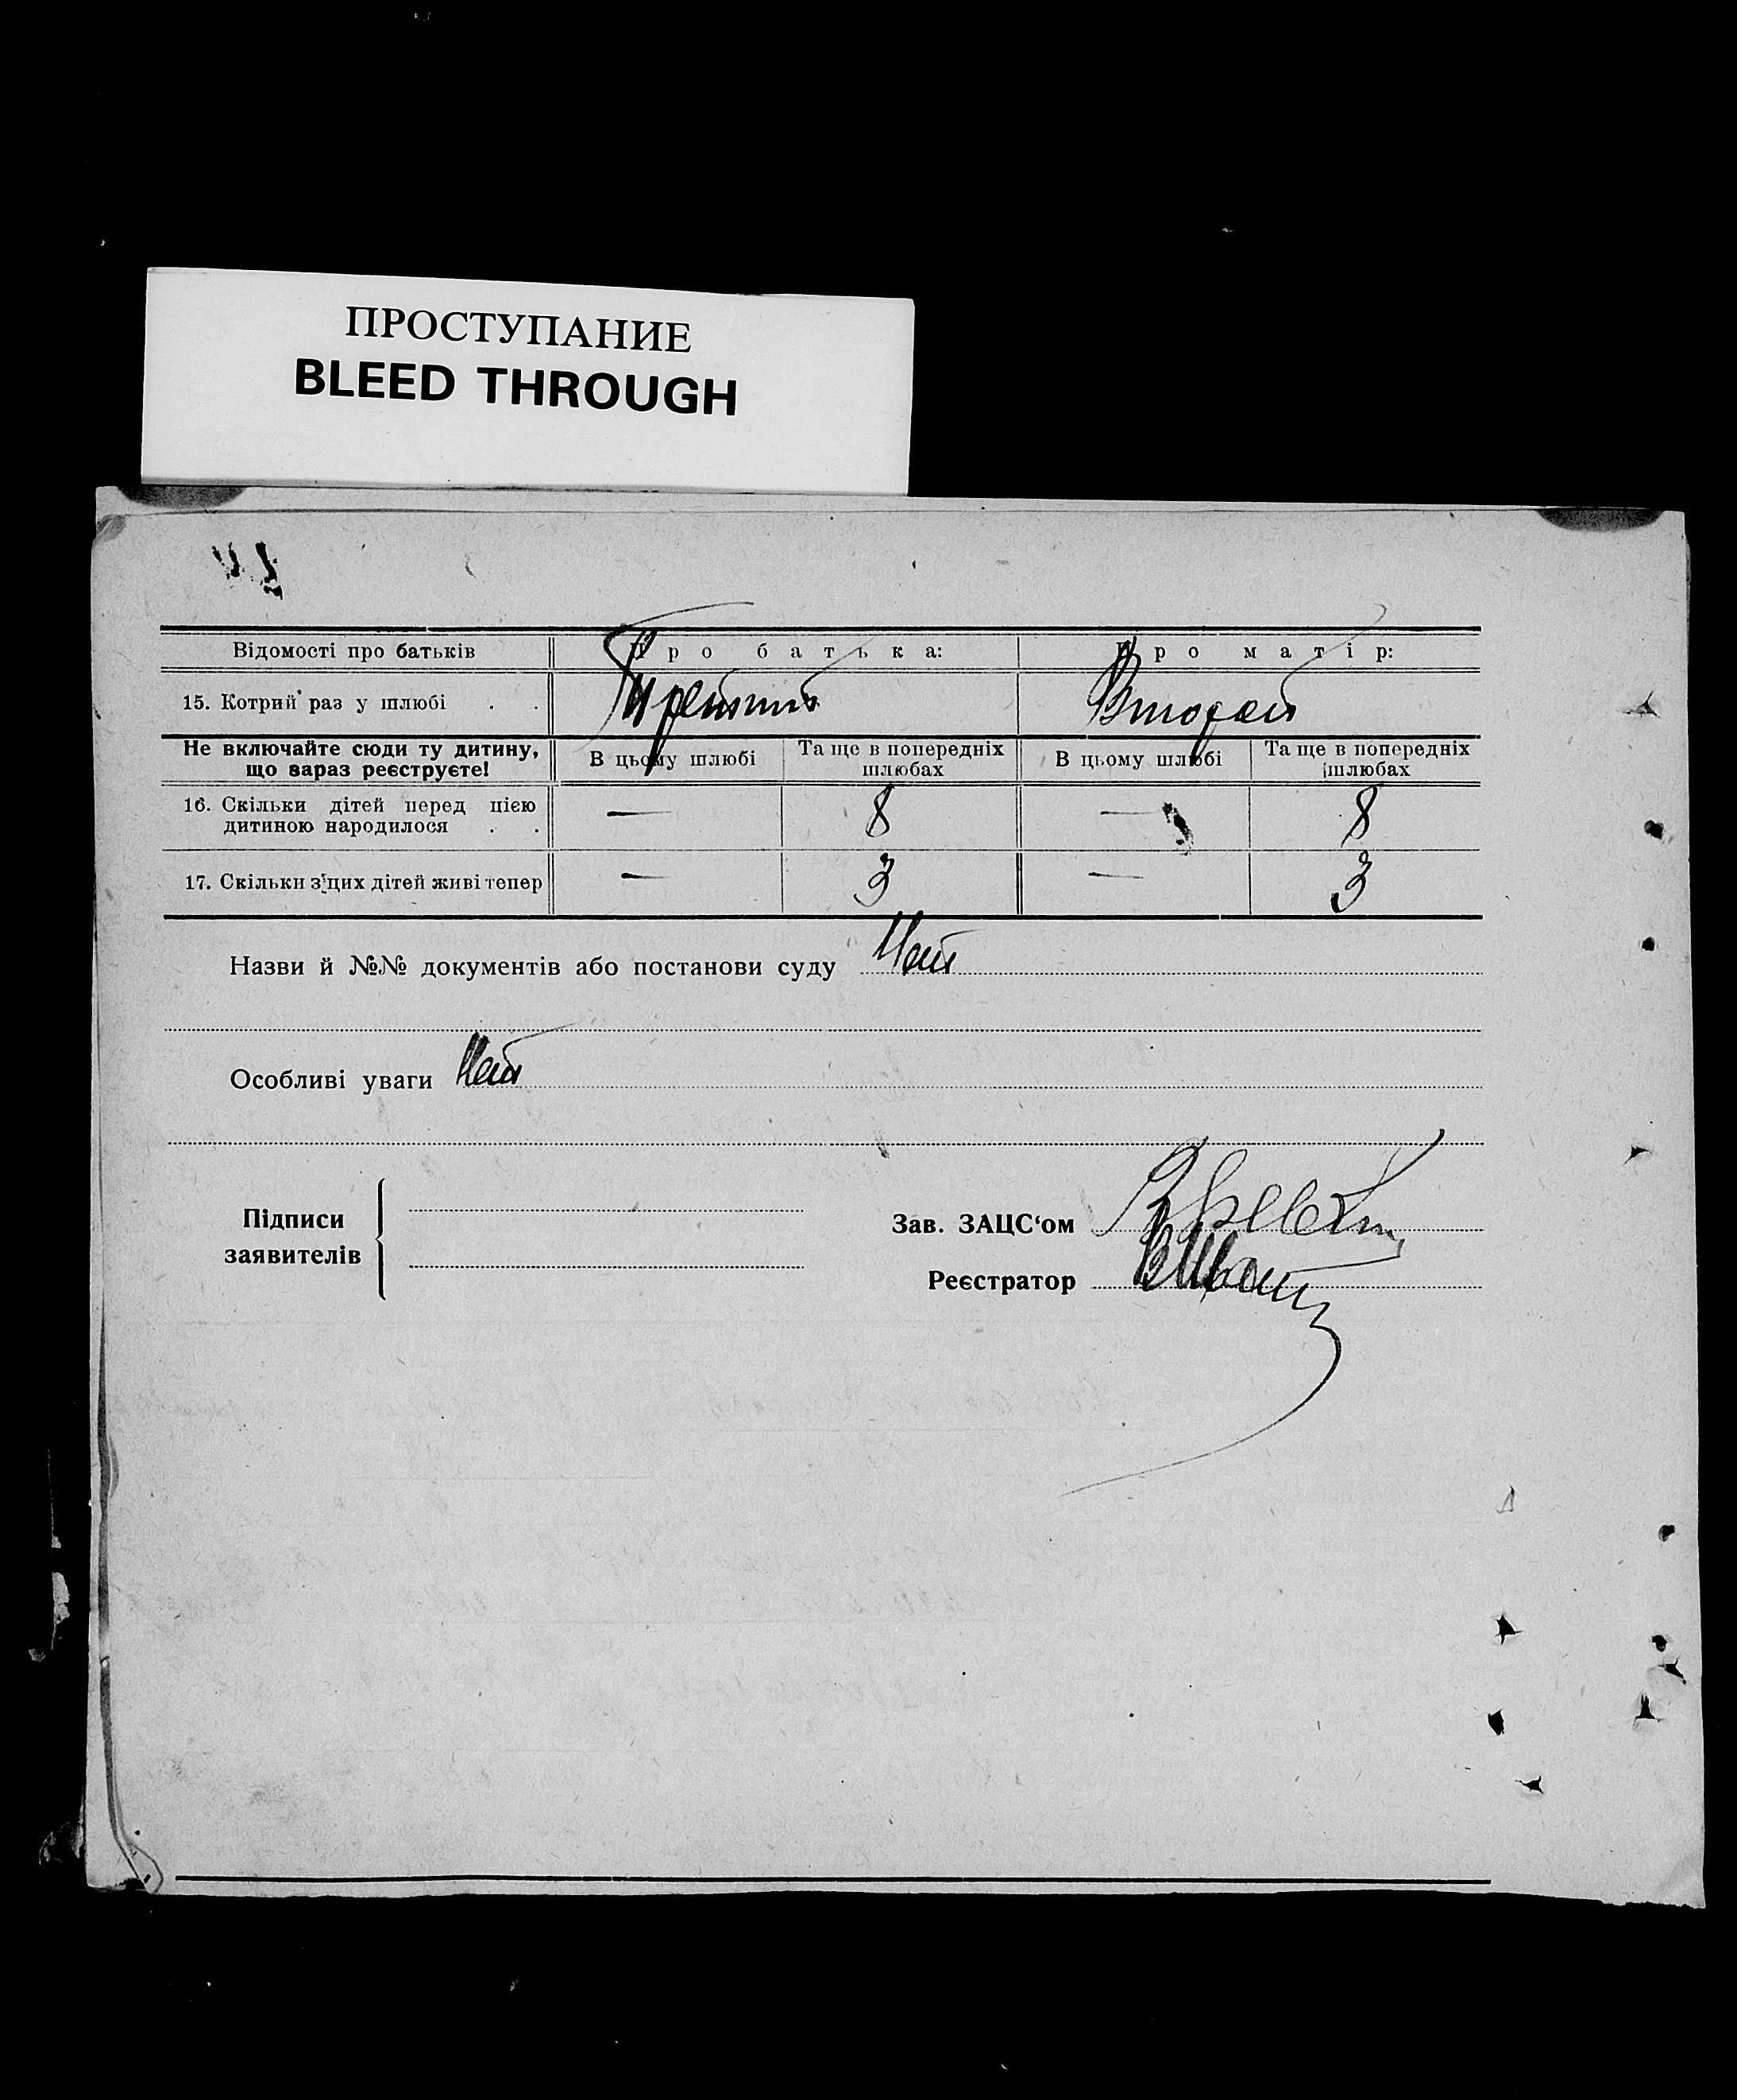 ПРОСТУПАНИЕ
BLEED THROUGH
Відомості про батьків Про батька: Про матір:
15. Котрий раз у шлюбі . . Третий Второй
Не включайте сюди ту дитину, що зараз реєструєте! В цьому шлюбі Та ще в попередніх шлюбах В цьому шлюбі Та ще в попередніх шлюбах
16. Скільки дітей перед цією дитиною народилося . . — 8 — 8
17. Скільки з цих дітей живі тепер — 3 — 3
Назви й №№ документів або постанови суду Нет
Особливі уваги Нет
Підписи заявителів
Зав. ЗАЦС‘ом
Реєстратор